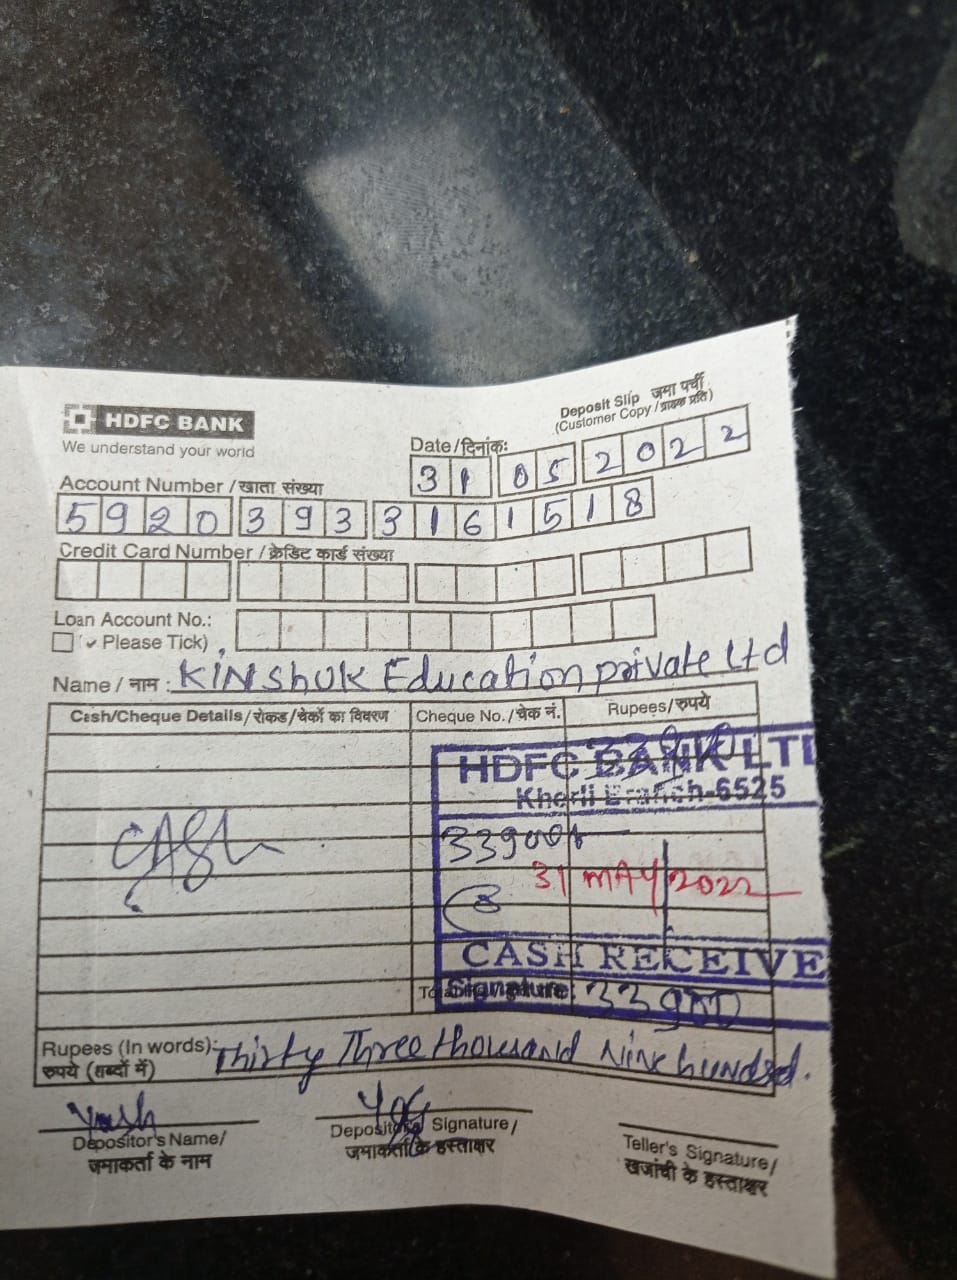 HDFC BANK
We understand your world
Deposit Slip जमा पर्ची
(Customer Copy / ग्राहक प्रति)
Date / दिनांक:
31 05 2022
Account Number / खाता संख्या
5920 393 3161518
Credit Card Number / क्रेडिट कार्ड संख्या
Loan Account No.:
(✓ Please Tick)
Name / नाम : KINShUK Education private Ltd
Cash/Cheque Details / रोकड/चेकों का विवरण Cheque No. / चेक नं. Rupees/रुपये
HDFC BANK LT
Kherli Branch-6525
CASH
31 MAY 2022
CASH RECEIVE
Signature 33900
Rupees (In words): Thirty Three thousand Nine hundred.
रुपये (शब्दों में)
Yash
Depositor's Name/ Depositor's Signature/ Teller's Signature/
जमाकर्ता के नाम जमाकर्ता के हस्ताक्षर खजांची के हस्ताक्षर